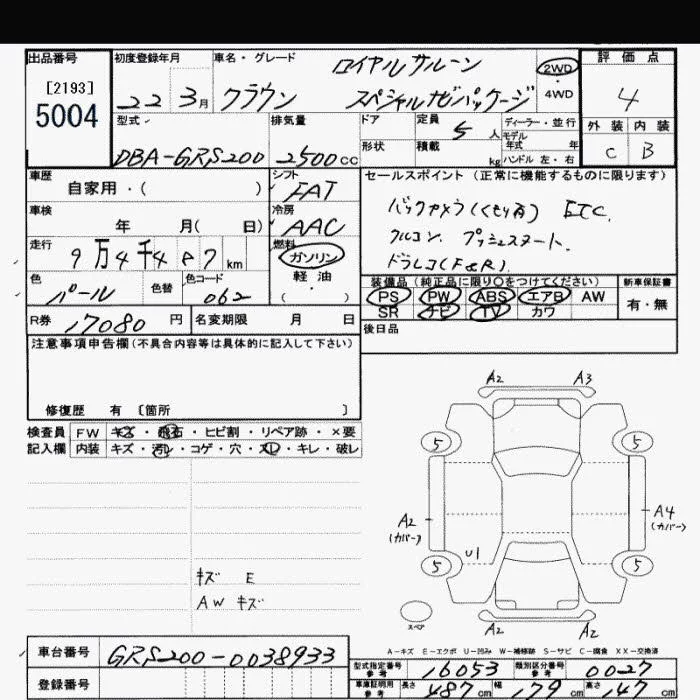 出品番号 初度登録年月 車名・グレード 評価点
[2193]
5004
22 3月 クラウン ロイヤルサルーン
スペシャルナビパッケージ
2WD
4WD
4
外装 内装
C B
型式 排気量 ドア 定員 ディーラー・並行
DBA-GRS200 2500cc 5人 モデル年式 年
形状 積載 kg ハンドル 左・右
車歴 シフト セールスポイント(正常に機能するものに限ります)
自家用・( ) FAT
バックカメラ(くもり有) ETC
車検 冷房
年 月( 日) AAC
クルコン. プッシュスタート.
走行 燃料
9万4千487km ガソリン
ドラレコ(F&R).
軽油・( )
色 色替 色コード
パール 062
装備品(純正品に限り○をつけてください) 新車保証書
PS PW ABS エアB AW 有・無
SR ナビ TV カワ
R券 17080円 名変期限 月 日
後日品
注意事項申告欄(不具合内容等は具体的に記入して下さい)
修復歴 有 〔箇所 〕
検査員 FW キズ・飛石・ヒビ割・リペア跡・×要
記入欄 内装 キズ・汚レ・コゲ・穴・スレ・キレ・破レ
A2 A3
5 5
A2 A4
(カバー) (カバー)
U1
5 5
キズ E
AW キズ
スペア
A2 A2
A-キズ E-エクボ U-凹み W-補修跡 S-サビ C-腐食 XX-交換済
車台番号 GRS200-0038933
型式指定番号 参考 16053 類別区分番号 参考 0027
登録番号
車庫証明用 参考 長さ 487cm 幅 179cm 高さ 147cm